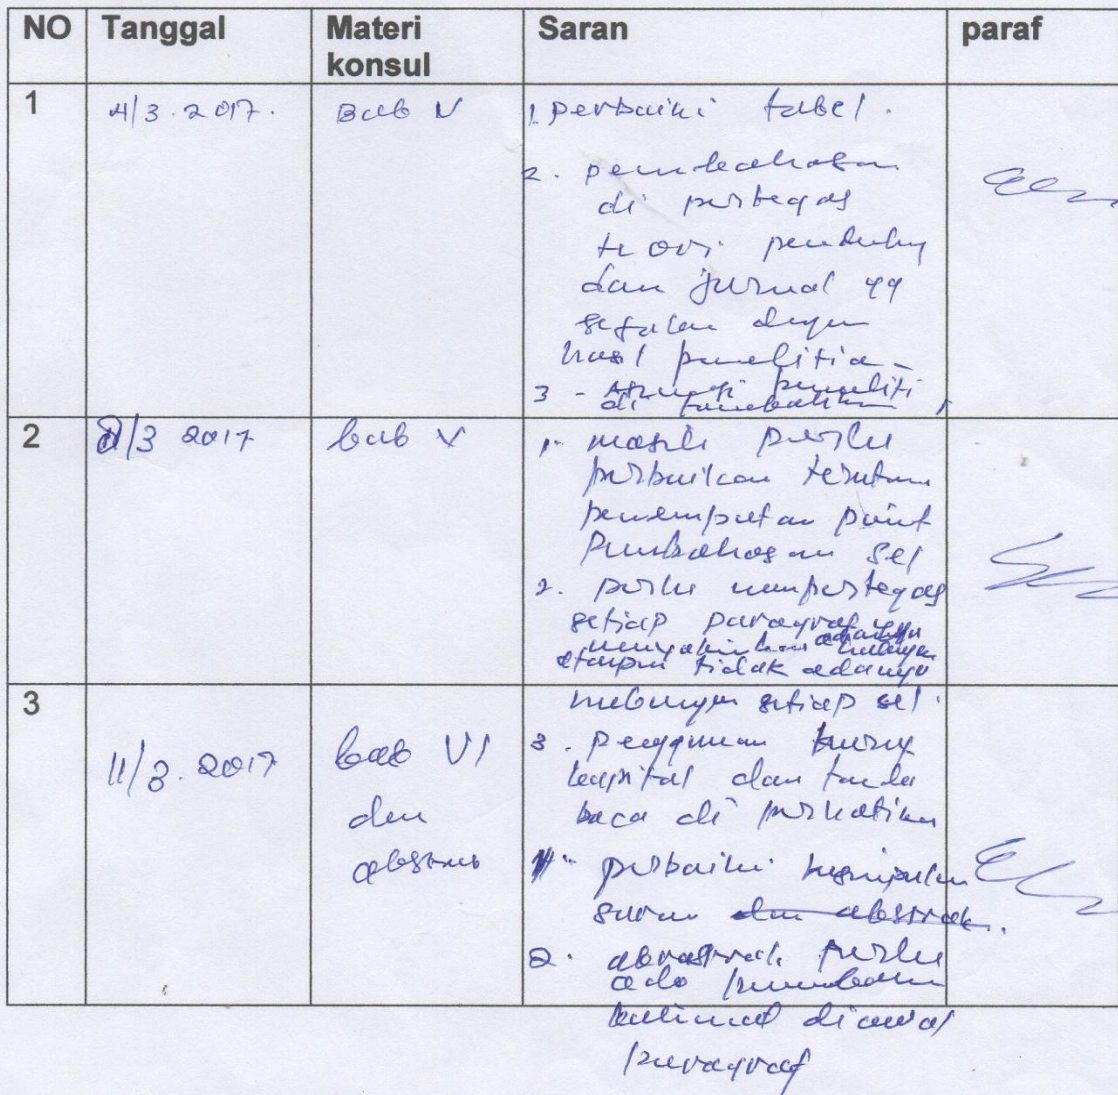 NO Tanggal Materi konsul Saran paraf
1 4/3.2017. Bab V 1. perbaiki tabel.
2. pembahasan
di pertegas
teori pendukung
dan jurnal yg
sejalan dengan
hasil penelitian
3 - asumsi peneliti
di tambahkan
2 8/3 2017 bab V 1. masih perlu
perbaikan terutama
penempatan point
pembahasan sel
2. perlu mempertegas
setiap paragraf yg
menyakinkan adanya hubungan
ataupun tidak adanya
hubungan setiap sel.
3 3. penggunaan huruf
kapital dan tanda
baca di perhatikan
11/3.2017 bab VI
dan
abstrak
1. perbaiki kesimpulan
saran dan abstrak.
2. abstrak perlu
ada penambahan
kalimat diawal
paragraf